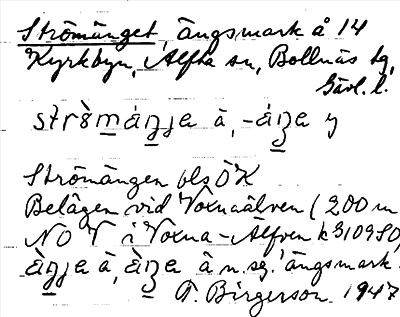 Strömänget, ängsmark å 14
Kyrkbyn, Alfta sn, Bollnäs tg,
Gävl. l.
å, y
Strömängen bls ÖK
Belägen vid Voxnaälven (200 m
NO V i Voxna-Älfven k310980,
å, å n. sg. 'ängsmark.'
T. Birgerson 1947